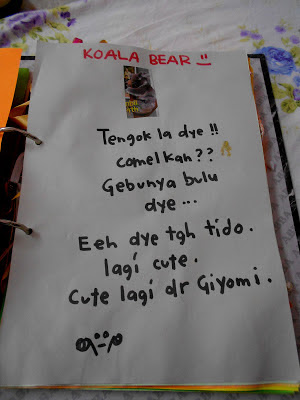 KOALA BEAR
Tengok la dye !!
comelkan ??
Gebunya bulu
dye ...
Eeh dye tgh tido.
lagi cute.
Cute lagi dr Giyomi.